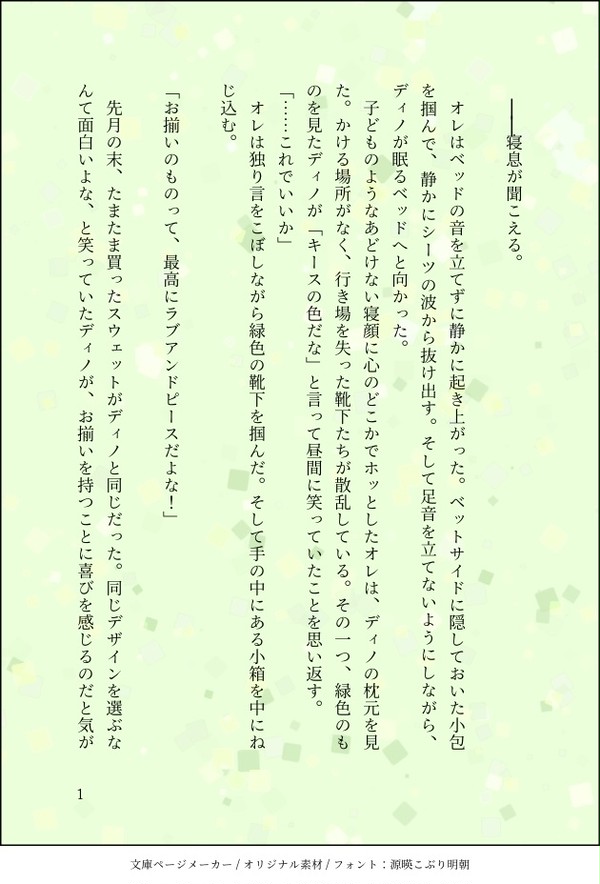 ――寝息が聞こえる。
　オレはベッドの音を立てずに静かに起き上がった。ベットサイドに隠しておいた小包
を掴んで、静かにシーツの波から抜け出す。そして足音を立てないようにしながら、
ディノが眠るベッドへと向かった。
　子どものようなあどけない寝顔に心のどこかでホッとしたオレは、ディノの枕元を見
た。かける場所がなく、行き場を失った靴下たちが散乱している。その一つ、緑色のも
のを見たディノが「キースの色だな」と言って昼間に笑っていたことを思い返す。
「……これでいいか」
　オレは独り言をこぼしながら緑色の靴下を掴んだ。そして手の中にある小箱を中にね
じ込む。
「お揃いのものって、最高にラブアンドピースだよな！」
　先月の末、たまたま買ったスウェットがディノと同じだった。同じデザインを選ぶな
んて面白いよな、と笑っていたディノが、お揃いを持つことに喜びを感じるのだと気が
1
文庫ページメーカー / オリジナル素材 / フォント：源暎こぶり明朝